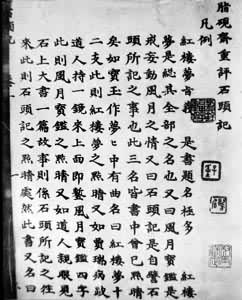 脂硯齋重評石頭記
凡例
紅樓夢旨義 是書題名極多
夢是總其全部之名也又曰風月寶鑑是
戒妄動風月之情又曰石頭記是自譬石
頭所記之事也此三名皆書中曾已㸃睛
矣如寶玉作夢〻中有曲名曰紅樓夢十
二支此則紅樓夢之㸃睛又如賈瑞病跛
道人持一鏡來上面即鏨風月寶鑑四字
此則風月寶鑑之㸃睛又如道人親眼見
石上大書一篇故事則係石頭所記之往
來此則石頭記之㸃睛處然此書又名曰